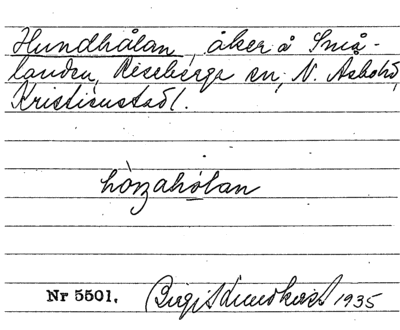 Hundhålan, åker å Små-
landen, Riseberga sn, N. Åsbohd,
Kristianstad l.
hònzahólan
Nr 5501.
Birgit Lundkvist 1935